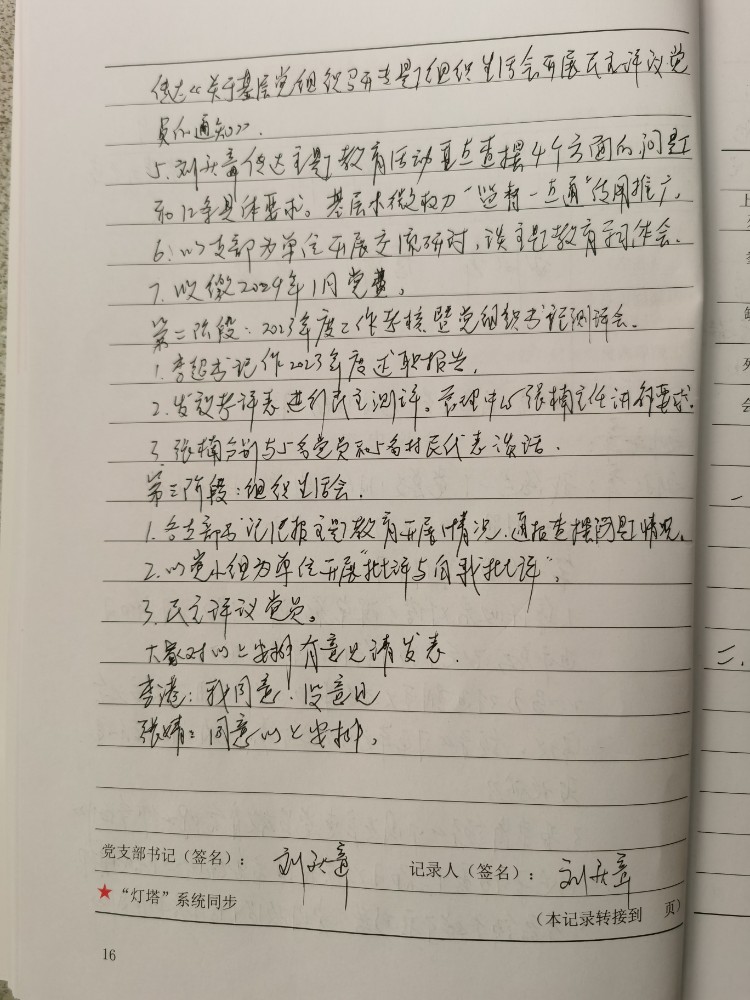 传达《关于基层党组织召开专题组织生活会开展民主评议党
员的通知》.
5.刘天章传达主题教育活动重点查摆4个方面的问题
和12条具体要求。基层小微权力“监督一点通”使用推广.
6.以支部为单位开展交流研讨,谈主题教育体会.
7.收缴2024年1月党费。
第二阶段:2023年度工作考核暨党组织书记测评会.
1.李超书记作2023年度述职报告.
2.发放考评表进行民主测评。管理中心张楠主任讲部要求.
3.张楠分别与5名党员和5名村民代表谈话.
第三阶段:组织生活会.
1.各支部书记汇报主题教育开展情况.通报查摆问题情况。
2.以党小组为单位开展“批评与自我批评”.
3.民主评议党员。
大家对以上安排有意见请发表.
李港:我同意.没意见
张婧:同意以上安排.
党支部书记(签名): 刘天章 记录人(签名): 刘天章
★“灯塔”系统同步
(本记录转接到 页)
16
上
列
会
一
二、